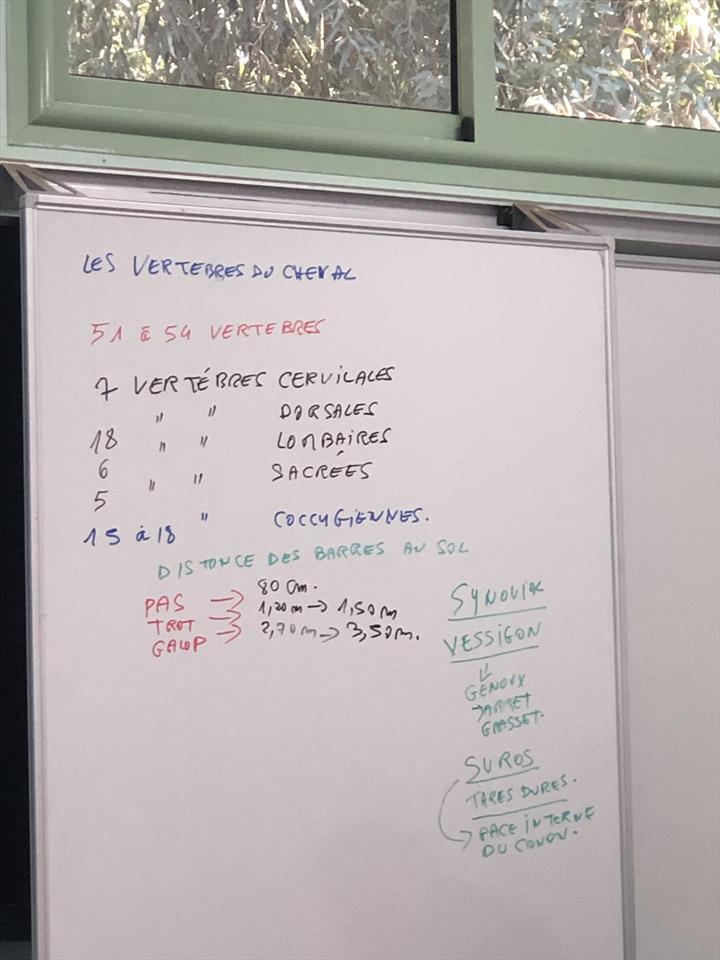 LES VERTEBRES DU CHEVAL
51 à 54 VERTEBRES
7 VERTÉBRES CERVICALES
" " DORSALES
18 " " LOMBAIRES
6 " " SACRÉES
5
15 à 18 " COCCYGIENNES.
DISTONCE DES BARRES AU SOL
PAS → 80 cm.
TROT → 1,20m → 1,50m
GALOP → 2,70m → 3,50m.
SYNOVIAL
VESSIGON
GENOUX
JARRET
GRASSET.
SUROS
TARES DURES.
FACE INTERNE
DU CANON.